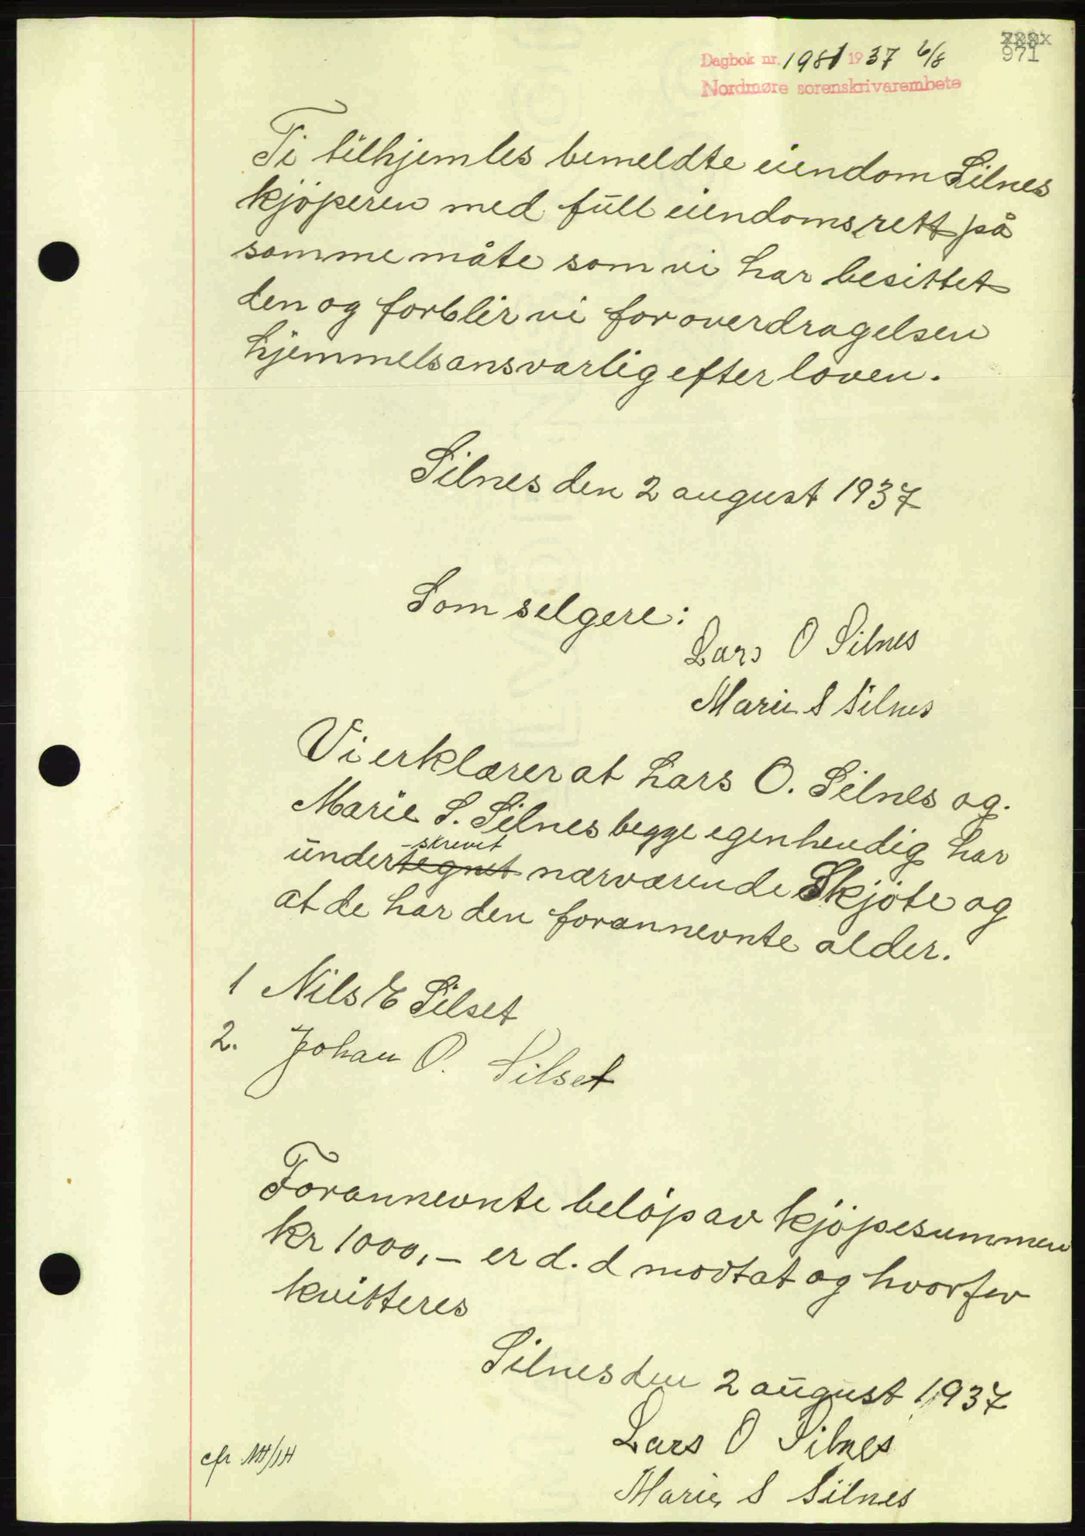 Dagbok nr. 1981 1937 6/8
971
Nordmøre sorenskrivarembete
Ti tilhjemles bemeldte eiendom Silnes
kjøperen med full eiendomsrett på
samme måte som vi har besittet
den og forblir vi for overdragelsen
hjemmelsansvarlig efter loven.
Silnes den 2 august 1937
Som selgere:
Lars O Silnes
Marie S Silnes
Vi erklærer at Lars O. Silnes og
Marie S. Silnes begge egenhendig har
skrevet
undertegnet nærværende Skjøte og
at de har den forannevnte alder.
1 Nils E Silset
2. Johan O. Silset
Forannevnte beløp av kjøpesummen
kr 1000,- er d.d mottat og hvorfor
kvitteres
Silnes den 2 august 1937
Lars O Silnes
cfr MH/IH
Marie S Silnes